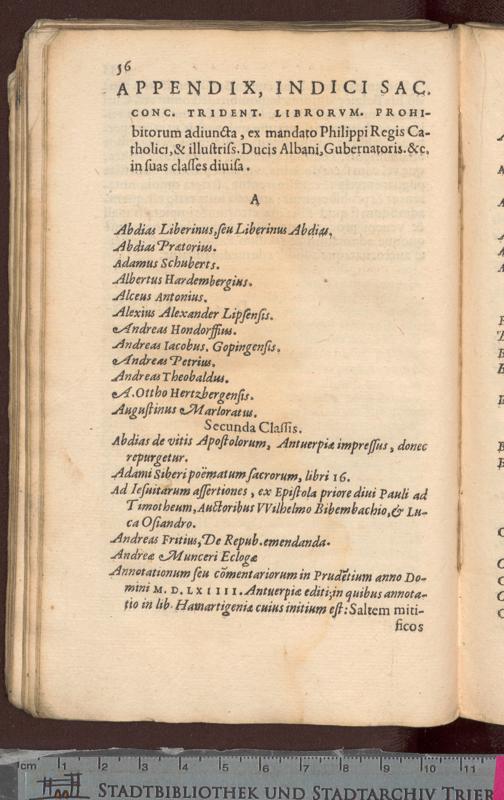 56
APPENDIX, INDICI SAC.
CONC. TRIDENT. LIBRORVM. PROHI-
bitorum adiuncta, ex mandato Philippi Regis Ca-
tholici, & illustriss. Ducis Albani, Gubernatoris. &c.
in suas classes diuisa.
A
Abdias Liberinus, seu Liberinus Abdias.
Abdias Prætorius.
Adamus Schuberts.
Albertus Hardembergius.
Alceus Antonius.
Alexius Alexander Lipsensis.
Andreas Hondorffius.
Andreas Iacobus. Gopingensis.
Andreas Petrius.
Andreas Theobaldus.
A. Ottho Hertzbergensis.
Augustinus Marloratus.
Secunda Classis.
Abdias de vitis Apostolorum, Antuerpiæ impressus, donec
repurgetur.
Adami Siberi poëmatum sacrorum, libri 16.
Ad Iesuitarum assertiones, ex Epistola priore diui Pauli ad
Timotheum, Auctoribus VVilhelmo Bibembachio, & Lu-
ca Osiandro.
Andreas Fritius, De Repub. emendanda.
Andreæ Munceri Eclogæ
Annotationum seu cõmentariorum in Prudẽtium anno Do-
mini M. D. LXIIII. Antuerpiæ editi; in quibus annota-
tio in lib. Hamartigeniæ cuius initium est: Saltem miti-
ficos
cm 1 2 3 4 5 6 7 8 9 10 11
STADTBIBLIOTHEK UND STADTARCHIV TRIER